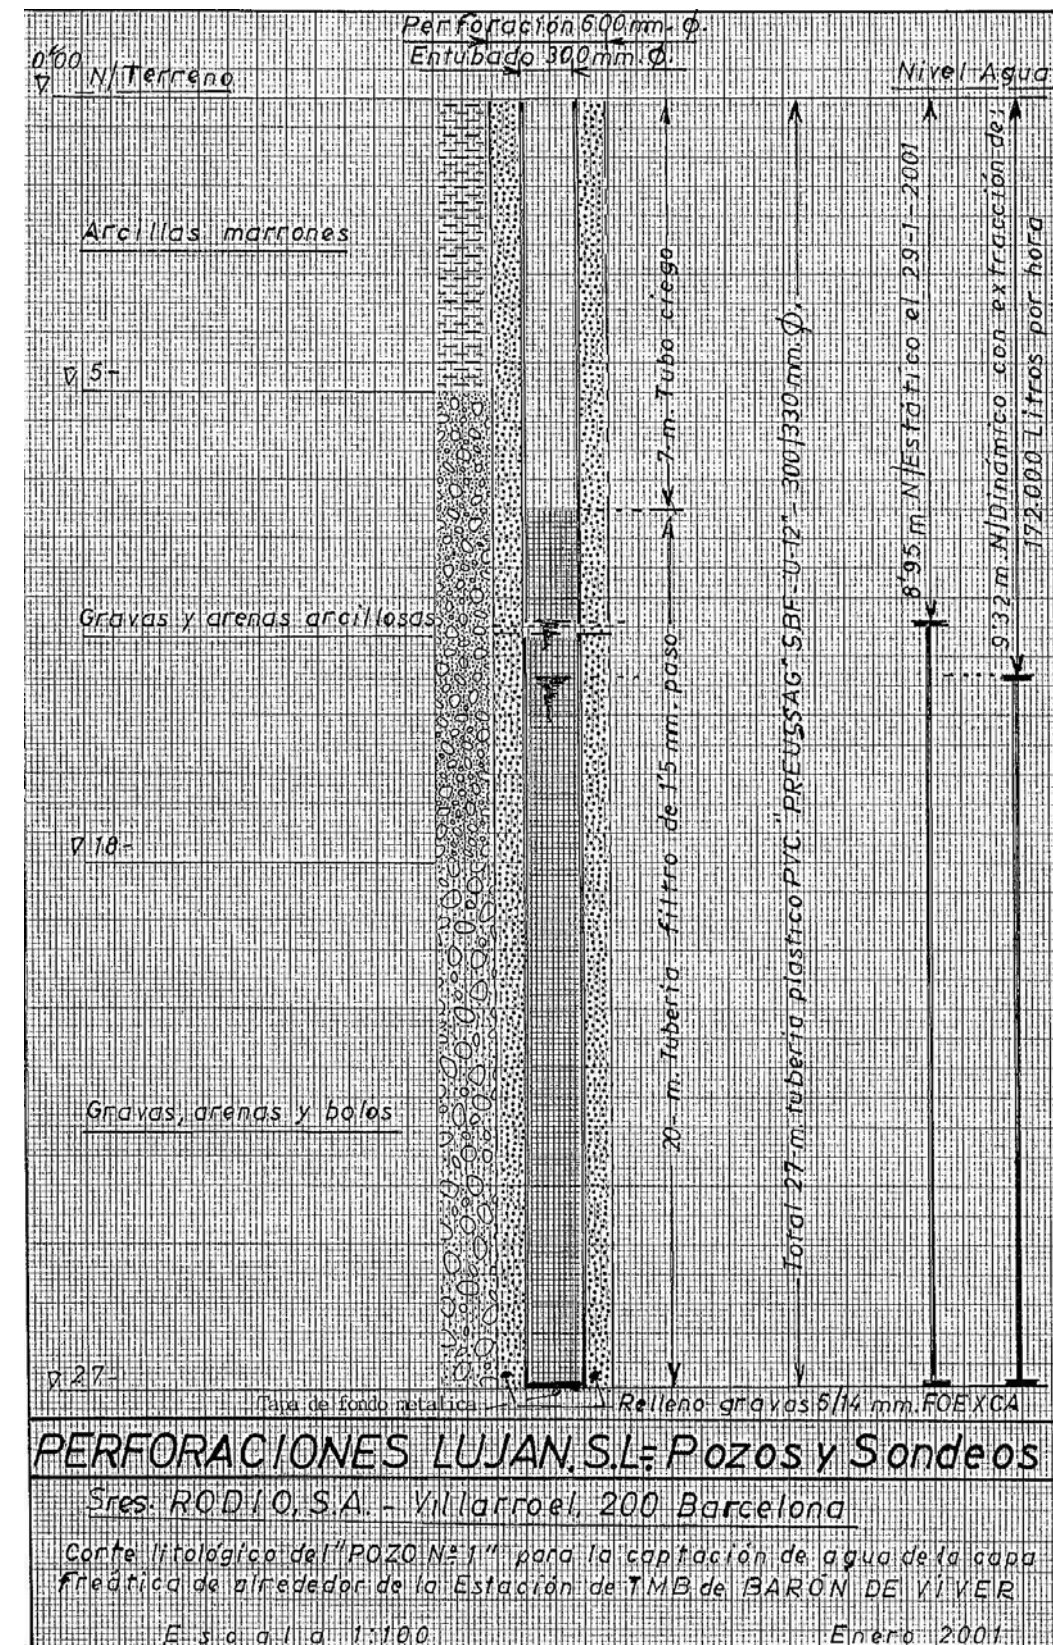 Perforación 600 mm. Ø.
Entubado 300 mm. Ø.
0'00 N/Terreno
Nivel Agua
Arcillas marrones
5-
Gravas y arenas arcillosas
18-
Gravas, arenas y bolos
27-
7-m. Tubo ciego
20- m. Tuberia filtro de 1'5 mm. paso
Total 27-m. tuberia plastico PVC "PREUSSAG" SBF-U-12"- 300/330 mm. Ø.
8'95 m. N/Estático el 29-1-2001
9'32 m. N/Dinámico con extracción de;
172.000 Litros por hora
Tapa de fondo metalica
Relleno gravas 5/14 mm. FOEXCA
PERFORACIONES LUJAN, S.L= Pozos y Sondeos
Sres. RODIO, S.A. - Villarroel, 200 Barcelona
Corte litológico del "POZO Nº 1" para la captación de agua de la capa
freática de alrededor de la Estación de TMB de BARÓN DE VIVER
Escala 1:100
Enero 2001